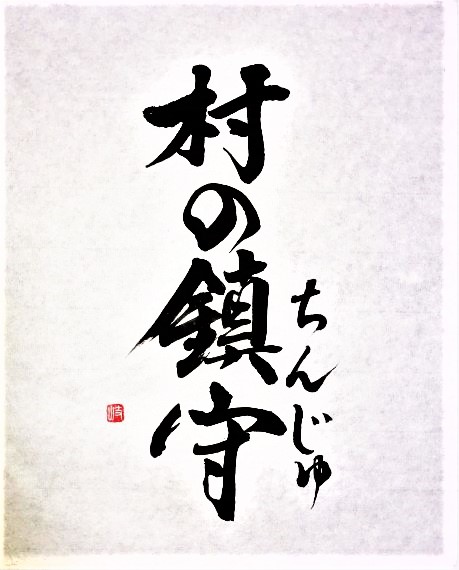 村の鎮守
ちんじゅ
岐